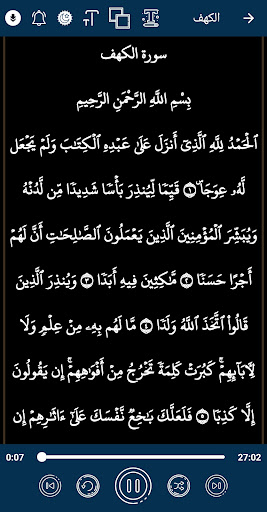 الكهف
سورة الكهف
بِسْمِ اللَّهِ الرَّحْمَٰنِ الرَّحِيمِ
ٱلْحَمْدُ لِلَّهِ ٱلَّذِىٓ أَنزَلَ عَلَىٰ عَبْدِهِ ٱلْكِتَٰبَ وَلَمْ يَجْعَل
لَّهُۥ عِوَجَا ۜ ١ قَيِّمًا لِّيُنذِرَ بَأْسًا شَدِيدًا مِّن لَّدُنْهُ
وَيُبَشِّرَ ٱلْمُؤْمِنِينَ ٱلَّذِينَ يَعْمَلُونَ ٱلصَّٰلِحَٰتِ أَنَّ لَهُمْ
أَجْرًا حَسَنًا ٢ مَّٰكِثِينَ فِيهِ أَبَدًا ٣ وَيُنذِرَ ٱلَّذِينَ
قَالُوا۟ ٱتَّخَذَ ٱللَّهُ وَلَدًا ٤ مَّا لَهُم بِهِۦ مِنْ عِلْمٍ وَلَا
لِـَٔابَآئِهِمْ ۚ كَبُرَتْ كَلِمَةً تَخْرُجُ مِنْ أَفْوَٰهِهِمْ ۚ إِن يَقُولُونَ
إِلَّا كَذِبًا ٥ فَلَعَلَّكَ بَٰخِعٌ نَّفْسَكَ عَلَىٰٓ ءَاثَٰرِهِمْ إِن
0:07 27:02